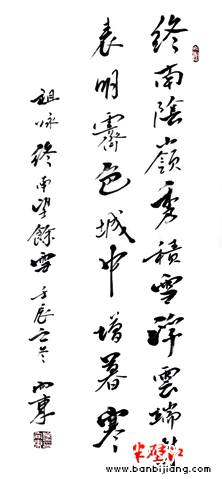 終南陰嶺秀積雪浮雲端林
表明霽色城中增暮寒
祖咏終南望餘雪 壬辰
半壁江
www.banbijiang.com